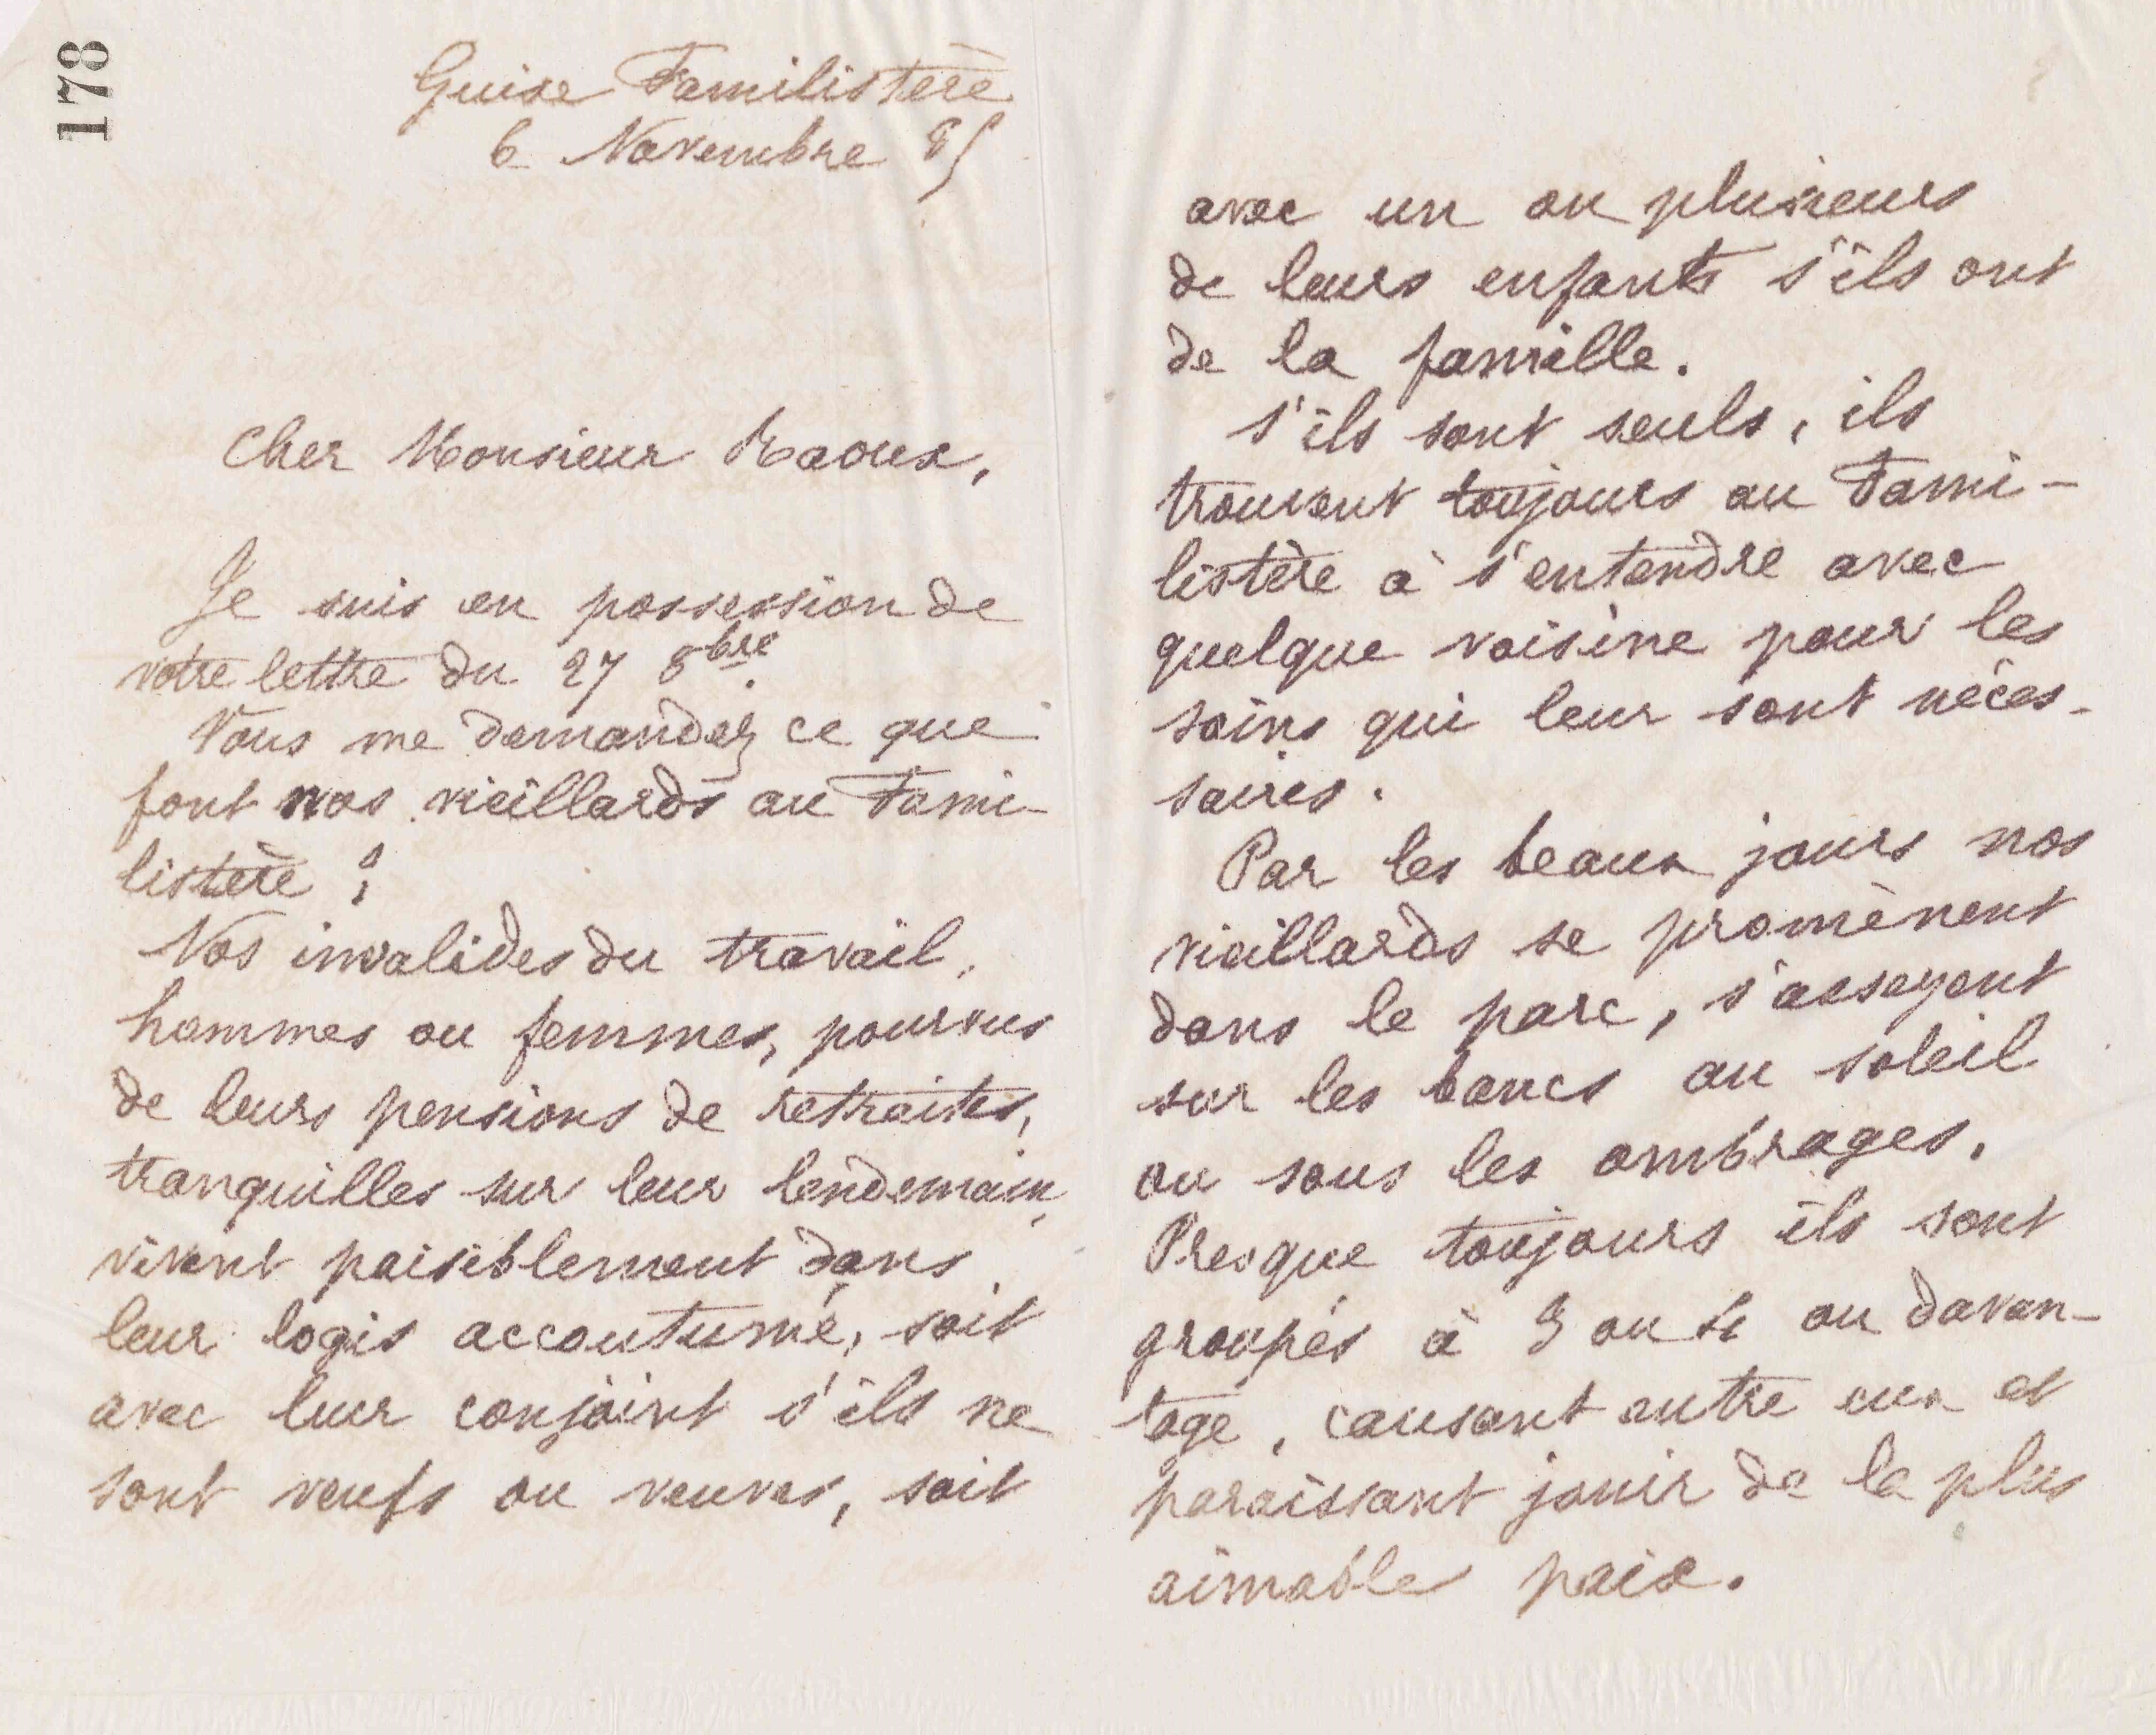 178
Guise Familistère
6 Novembre 85
Cher Monsieur Raoux,
Je suis en possession de
votre lettre du 27 8bre.
Vous me demandez ce que
font nos vieillards au Fami-
listère ?
Nos invalides du travail,
hommes ou femmes, pourvus
de leurs pensions de retraites,
tranquilles sur leur lendemain,
vivent paisiblement dans
leur logis accoutumé, soit
avec leur conjoint s'ils ne
sont veufs ou veuves, soit
avec un ou plusieurs
de leurs enfants s'ils ont
de la famille.
S'ils sont seuls, ils
trouvent toujours au Fami-
listère à s'entendre avec
quelque voisine pour les
soins qui leur sont néces-
saires.
Par les beaux jours nos
vieillards se promènent
dans le parc, s'asseyent
sur les bancs au soleil
ou sous les ombrages.
Presque toujours ils sont
groupés à 3 ou 4 ou davan-
tage, causant entre eux et
paraissant jouir de la plus
aimable paix.